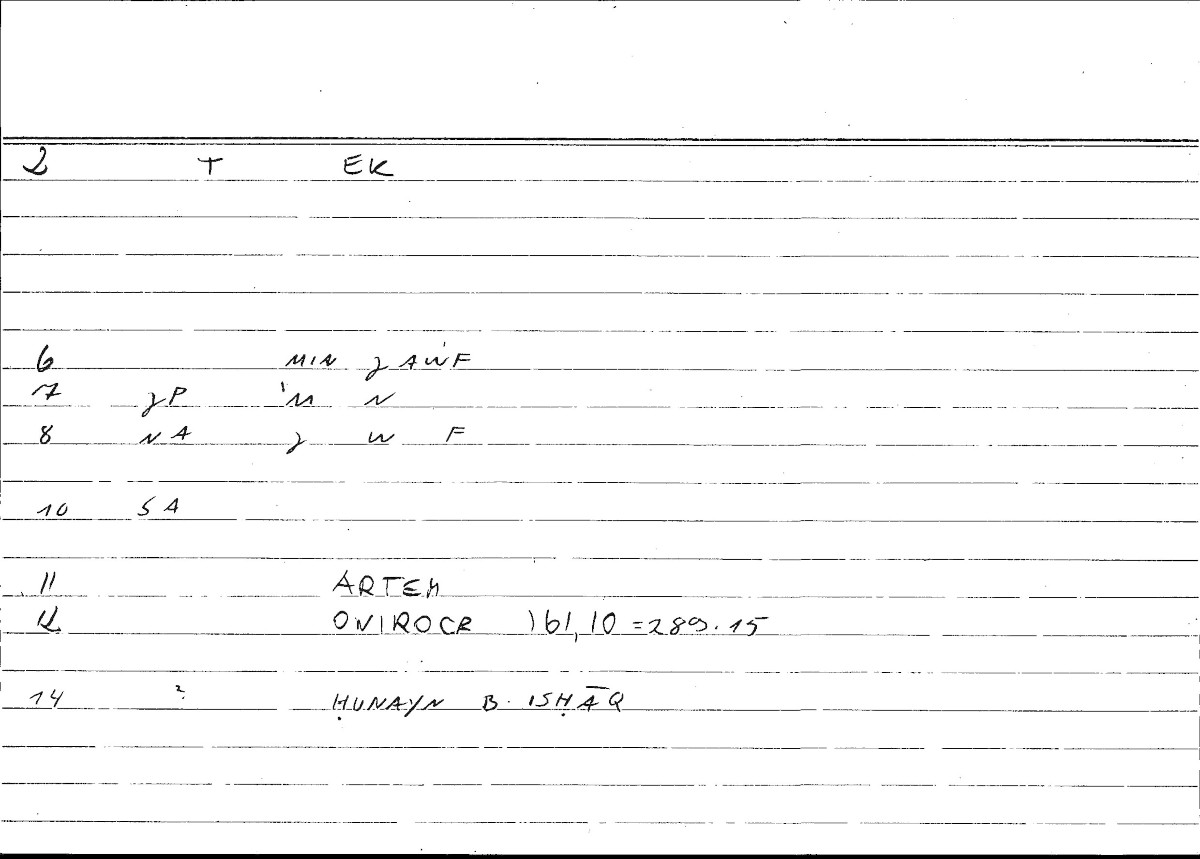 2 T EK
6 MIN ʒAWF
7 ʒP 'M N
8 NA ʒ W F
10 SA
11 ARTEM
12 ONIROCR 161,10 =289.15
14 2 ḤUNAYN B. ISḤĀQ